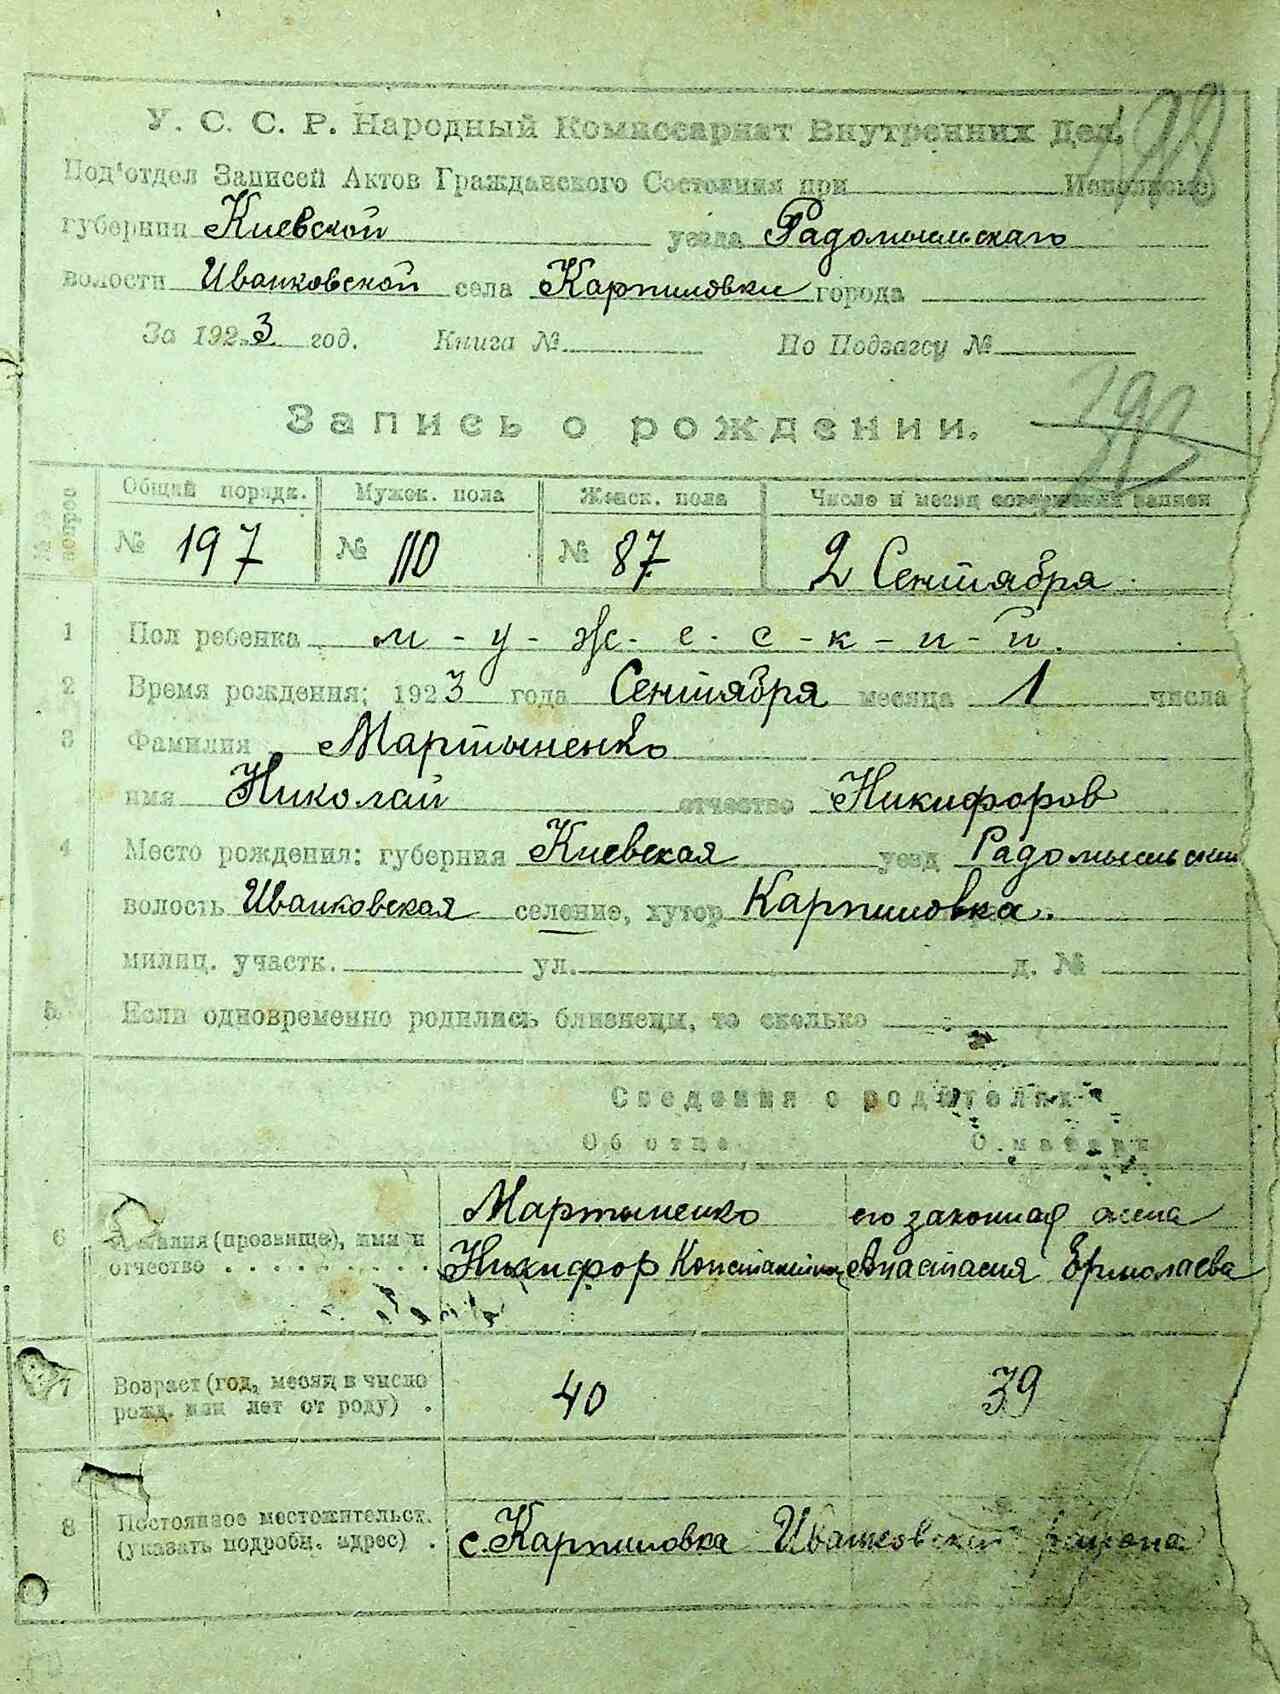 198
У. С. С. Р. Народный Комиссариат Внутренних Дел.
Под'отдел Записей Актов Гражданского Состояния при Исполкоме,
губернии Киевской уезда Радомысльскаго
волости Иванковской села Карпиловки города
За 1923 год. Книга № По Подзагсу №
Запись о рождении.
Общий порядк. Мужск. пола Женск. пола Число и месяц совершения записи
№ 197 № 110 № 87 2 Сентября
1 Пол ребенка м-у-ж-е-с-к-и-й.
2 Время рождения: 1923 года Сентября месяца 1 числа
3 Фамилия Мартыненко
имя Николай отчество Никифоров
4 Место рождения: губерния Киевская уезд Радомысльский
волость Иванковская селение, хутор Карпиловка.
милиц. участк. ул. д. №
5 Если одновременно родились близнецы, то сколько
Сведения о родителях
Об отце О матери
Мартыненко его законная жена
6 Фамилия (прозвище), имя и
отчество . . . . . . . . . Никифор Константинов Анастасия Ермолаева
7 Возраст (год, месяц и число
рожд. или лет от роду) . 40 39
8 Постоянное местожительст.
(указать подробн. адрес) . с. Карпиловка Иванковский района